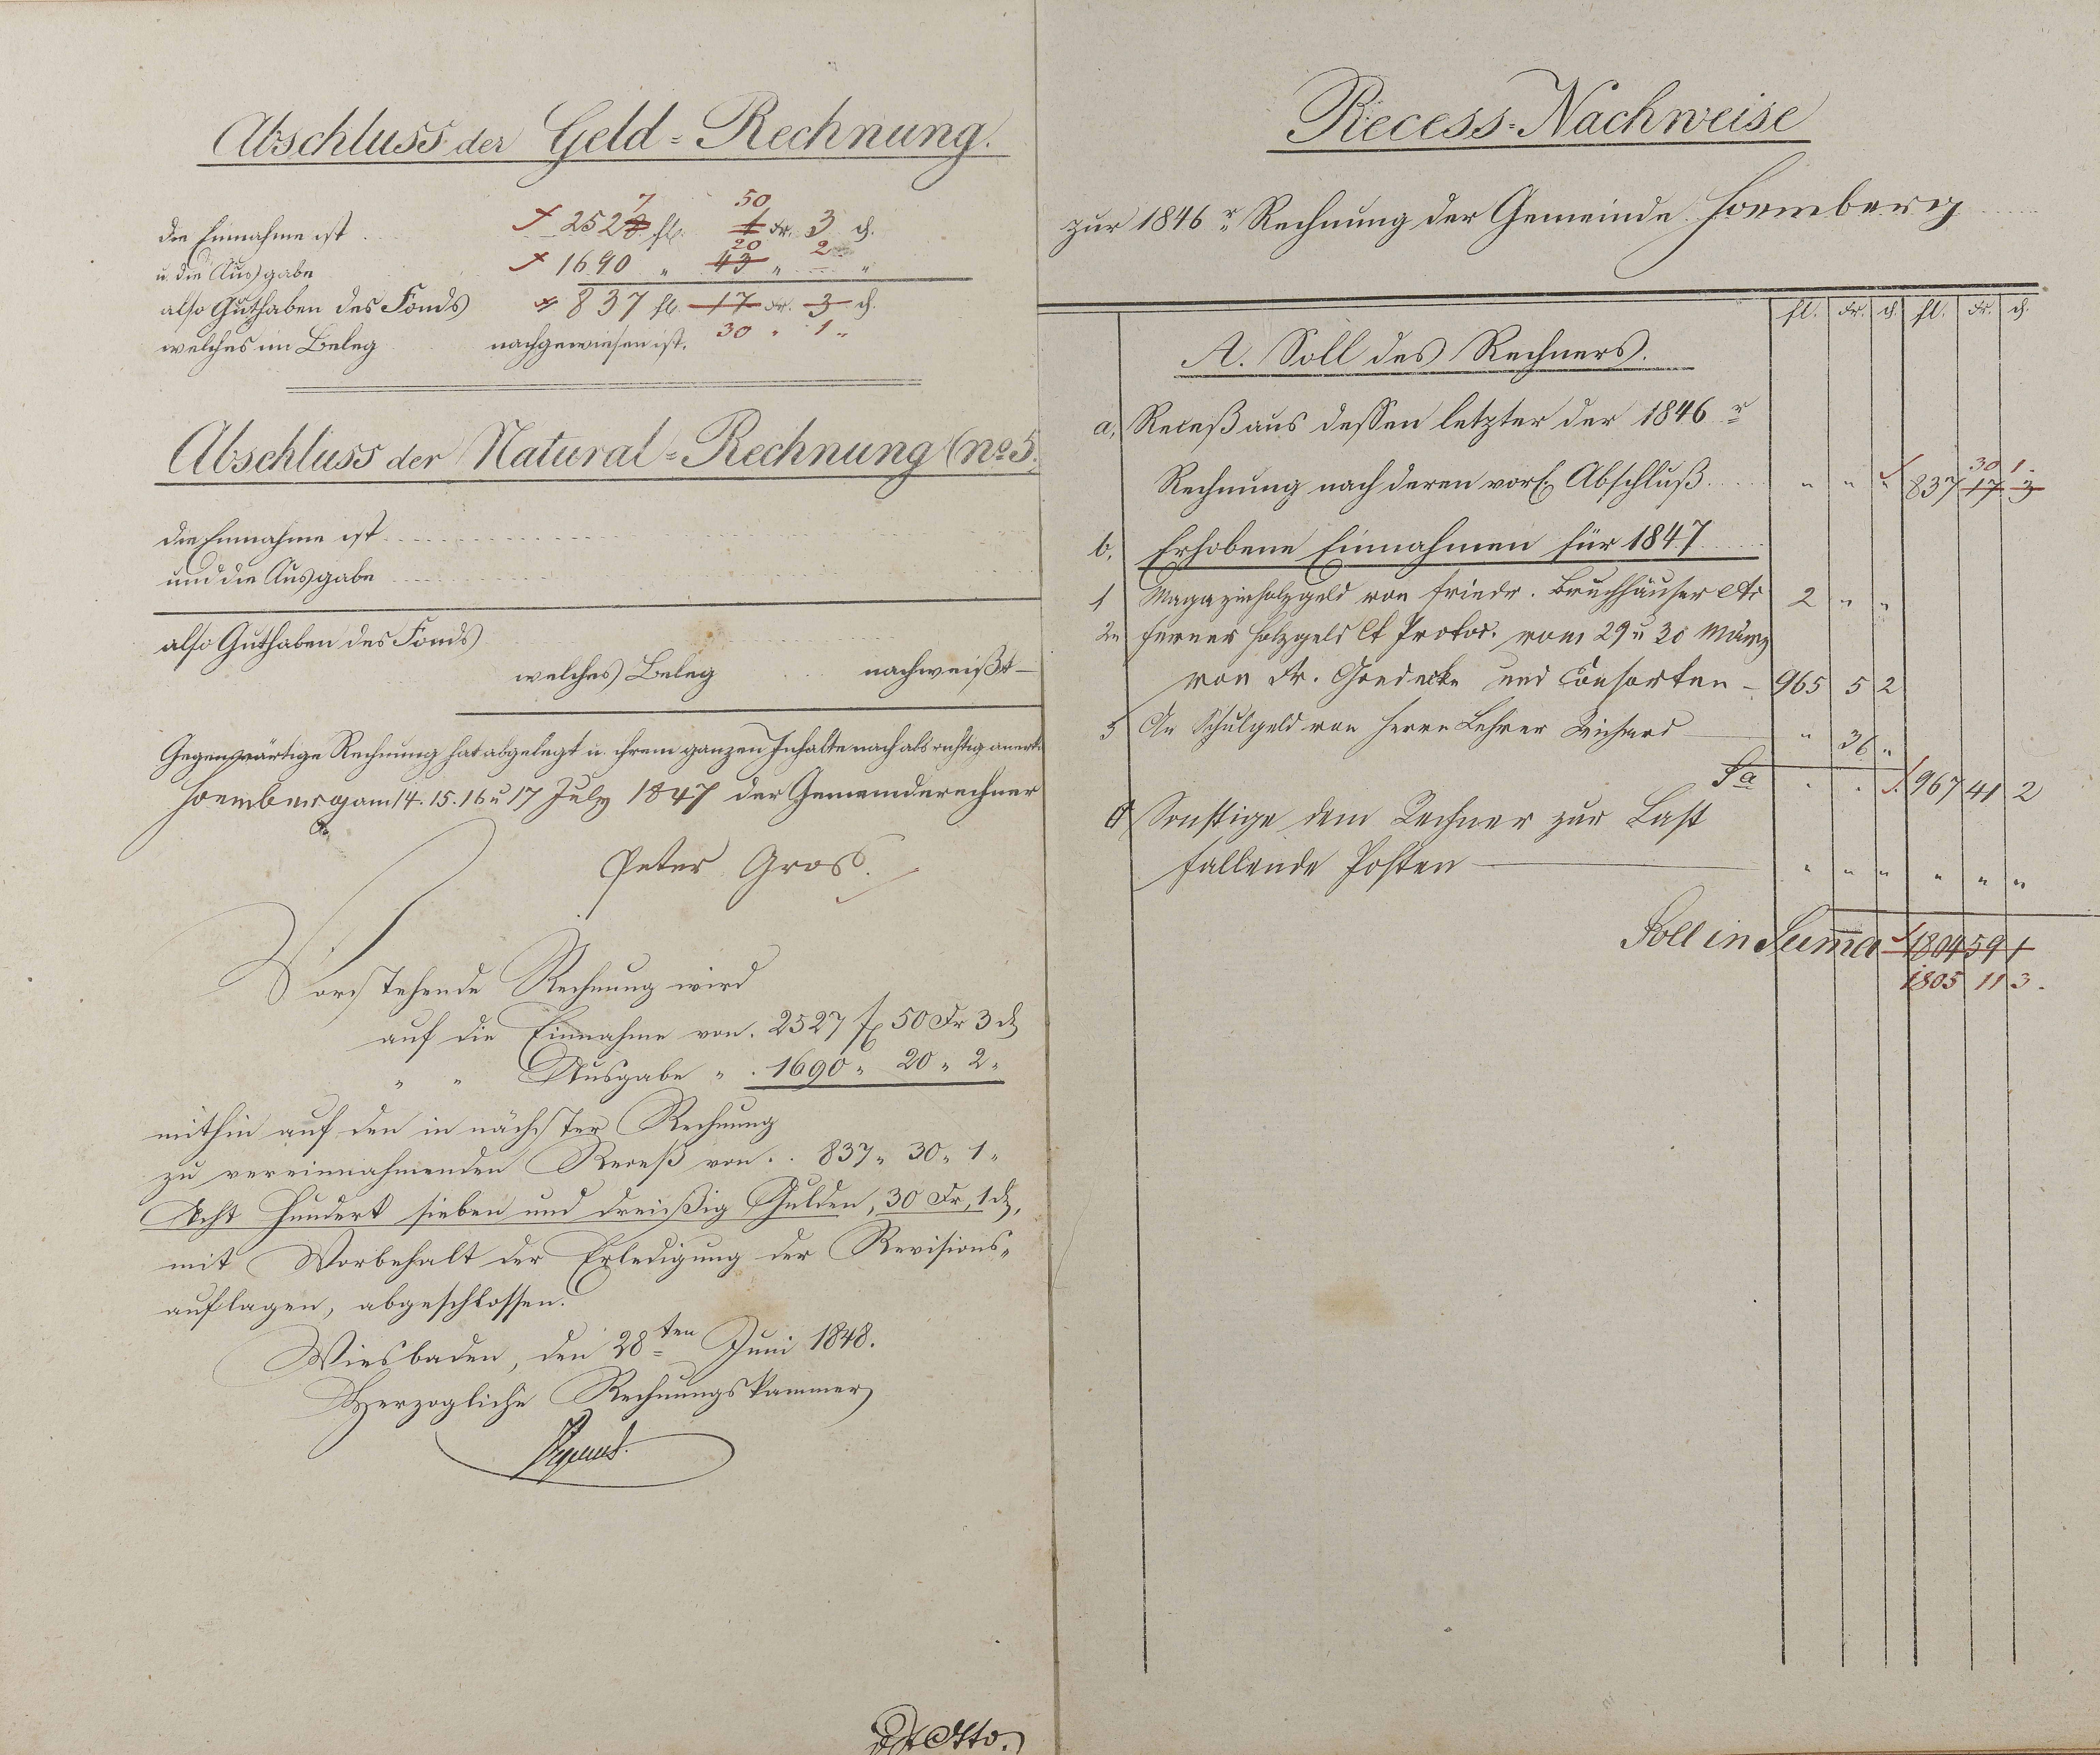 Abschluss der Geld-Rechnung.
7 50
die Einnahme ist 2528 fl. 1 Kr. 3 ₰.
20 2
u. die Ausgabe 1690 " 43 " "
also Guthaben des Fonds 837 fl. 17 Kr. 3 ₰.
welches im Beleg nachgewiesen ist. 30 " 1 "
Abschluss der Natural-Rechnung (No 5.
die Einnahme ist
und die Ausgabe
also Guthaben des Fonds
welches Beleg nachweißt
Gegenwärtige Rechnung hat abgelegt u. ihrem ganzen Inhalte nach als richtig anerk.
Hoemberg am 14. 15. 16 u 17 July 1847 der Gemeinderechner
Peter Gros.
Vorstehende Rechnung wird
auf die Einnahme von. 2527 fl 50 Kr 3 ₰
" " Ausgabe " . 1690 " 20 " 2 "
mithin auf den in nächster Rechnung
zu vereinnahmenden Receß von . . 837 " 30 " 1 "
Acht Hundert sieben und dreißig Gulden, 30 Kr, 1 ₰,
mit Vorbehalt der Erledigung der Revisions-
auflagen, abgeschlossen.
Wiesbaden, den 28ten Juni 1848.
Herzogliche Rechnungskammer
Otto.
Recess-Nachweise
zur 1846r Rechnung der Gemeinde Hoemberg
fl. Kr. ₰. fl. Kr. ₰.
A. Soll des Rechners.
a, Receß aus dessen letzter der 1846r
30 1.
Rechnung nach deren vors. Abschluß " " " 837 17 3
b, Erhobene Einnahmen für 1847
1 Magazinholzgeld von Friedr. Bruchhäuser 2 " "
2 ferner Holzgeld lt Protoc. vom 29 u 30 März
von Fr. Goedecke und Consorten 965 5 2
3 An Schulgeld von Herrn Lehrer Reichard " 36 "
Sa . . 967 41 2
c Sonstige dem Rechner zur Last
fallende Posten " " " " " "
Soll in Suma 1804 59 1
1805 11 3.